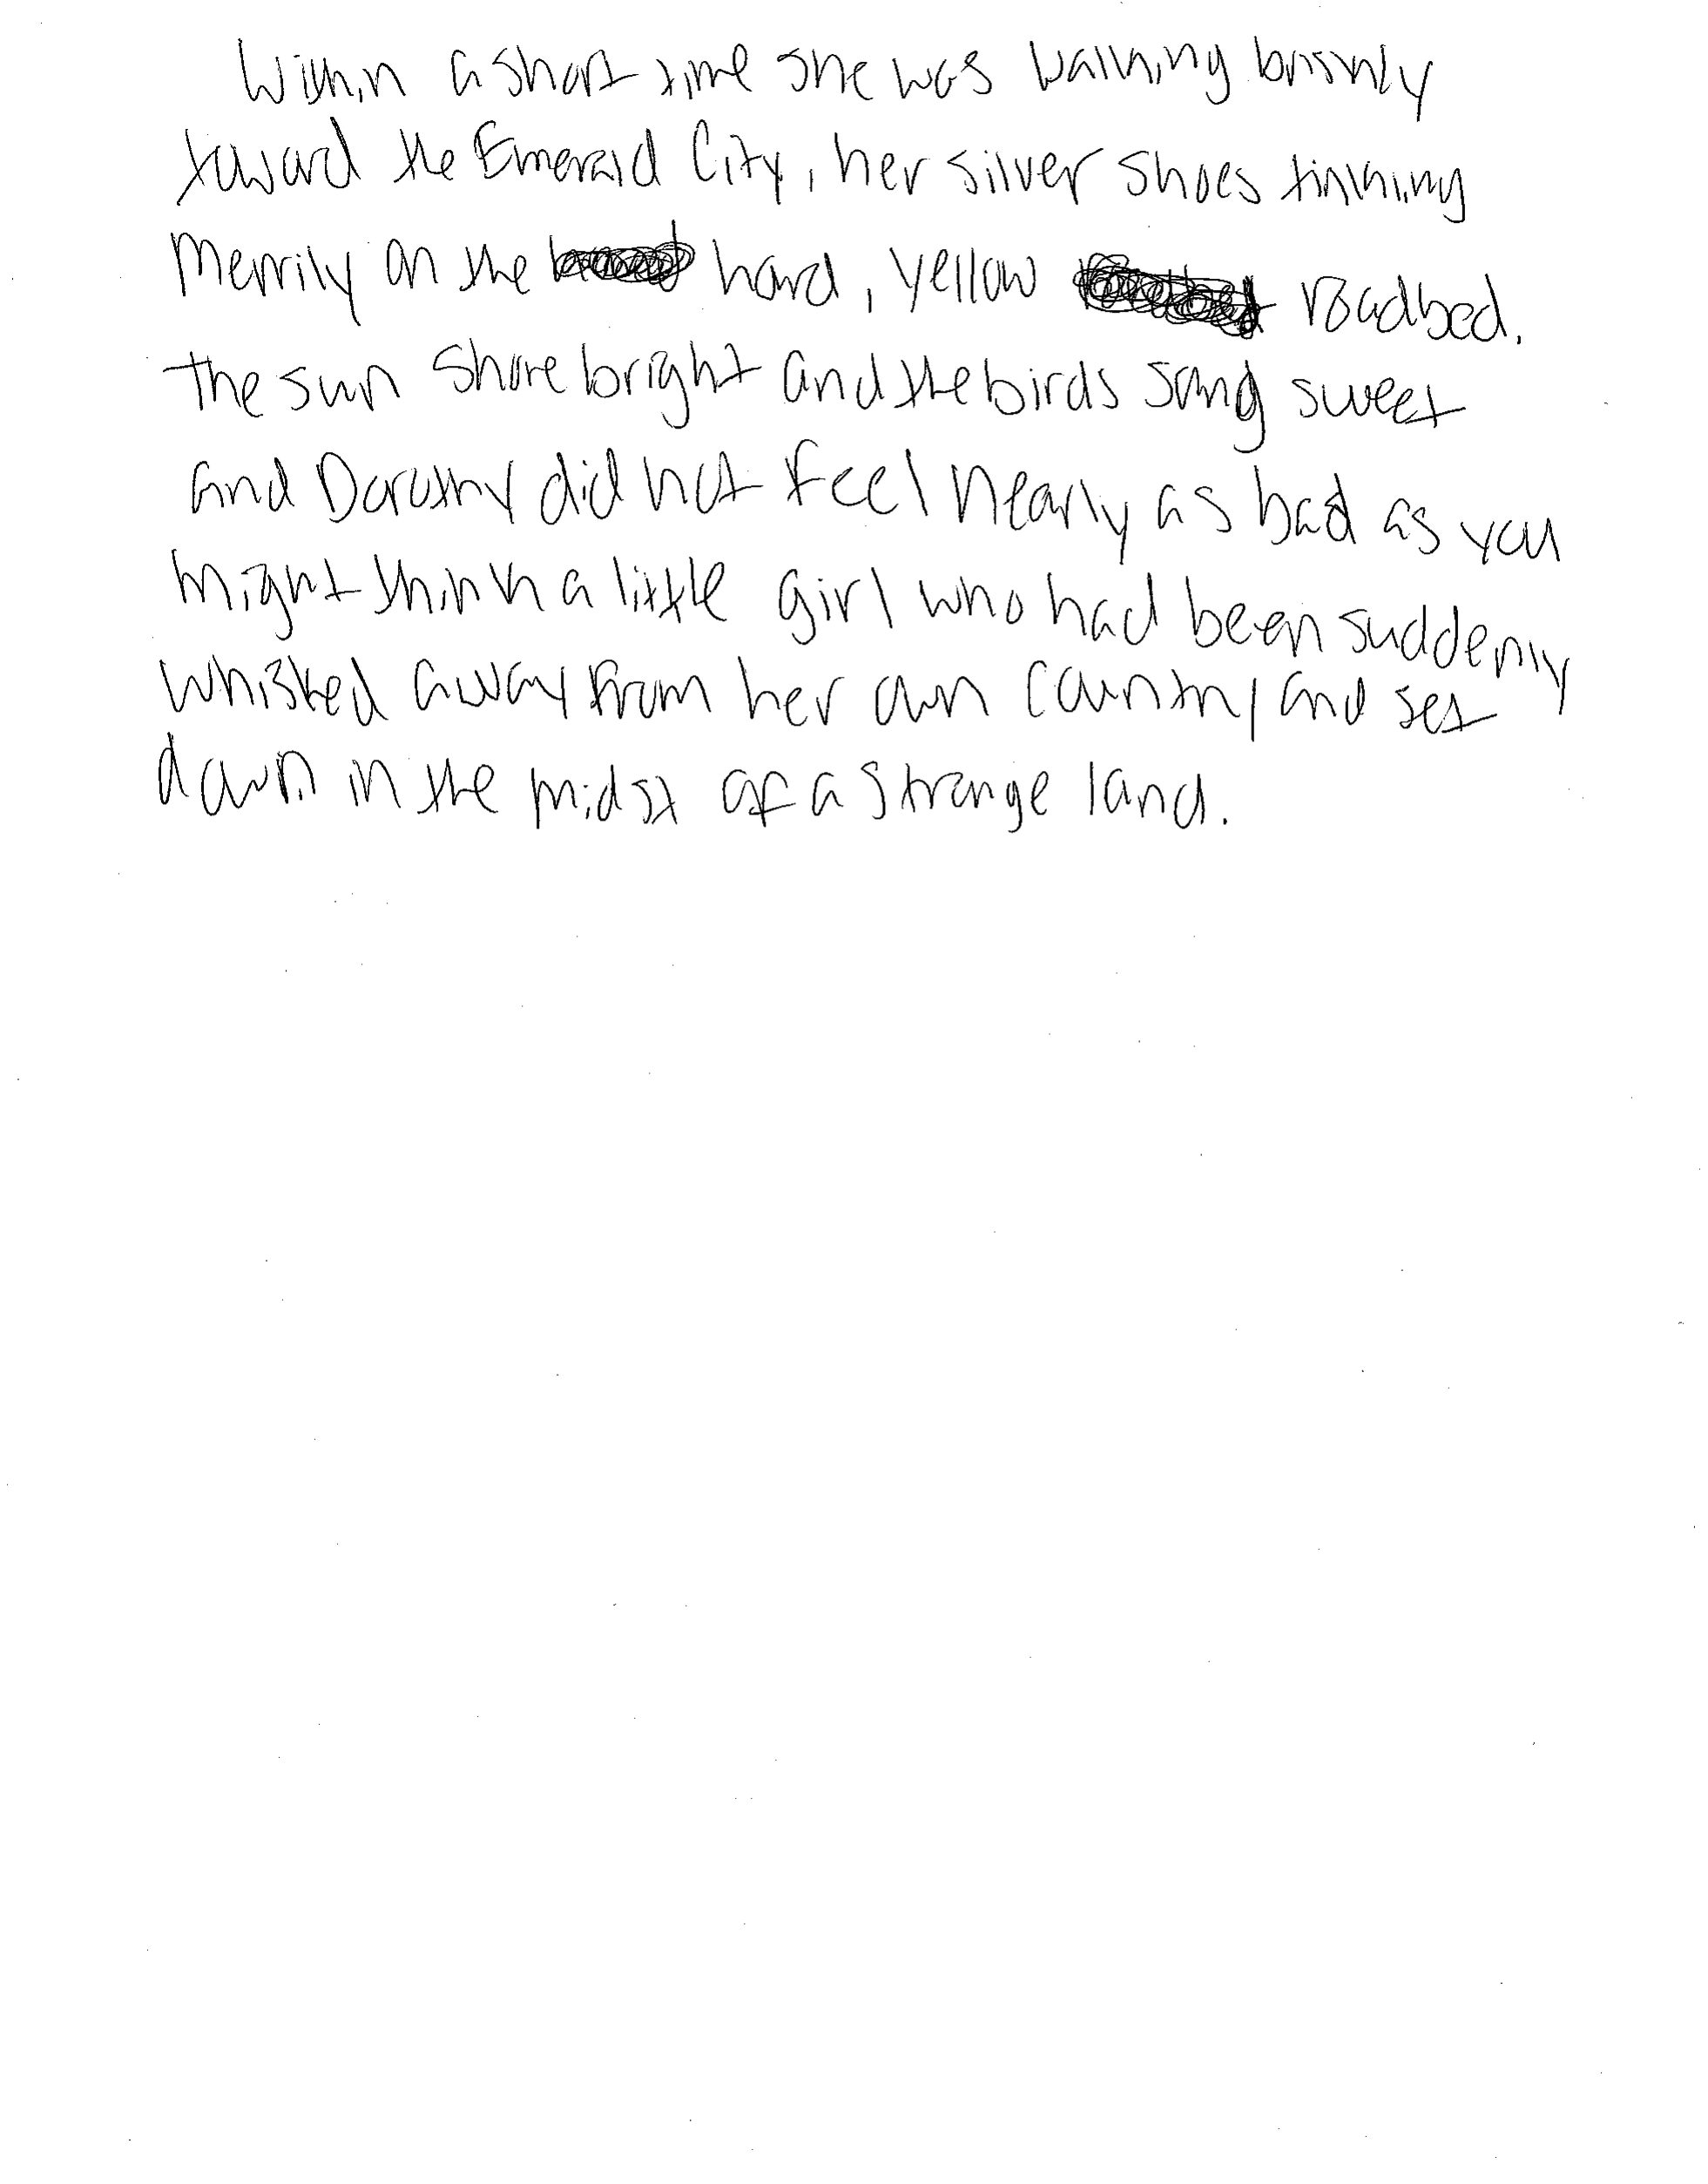 Within a short time she was walking briskly
toward the Emerald City, her silver shoes tinkling
merrily on the hard, yellow roadbed.
The sun shone bright and the birds sang sweet
and Dorothy did not feel nearly as bad as you
might think a little girl who had been suddenly
whisked away from her own country and set
down in the midst of a strange land.